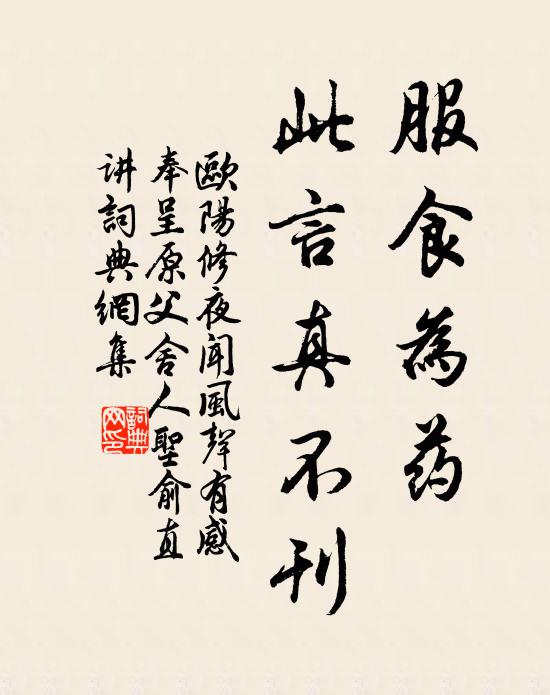 服食為药
此言真不刊
歐陽修夜闻風聲有感
奉呈原父舍人聖俞直
讲詞典網集
詞典网印